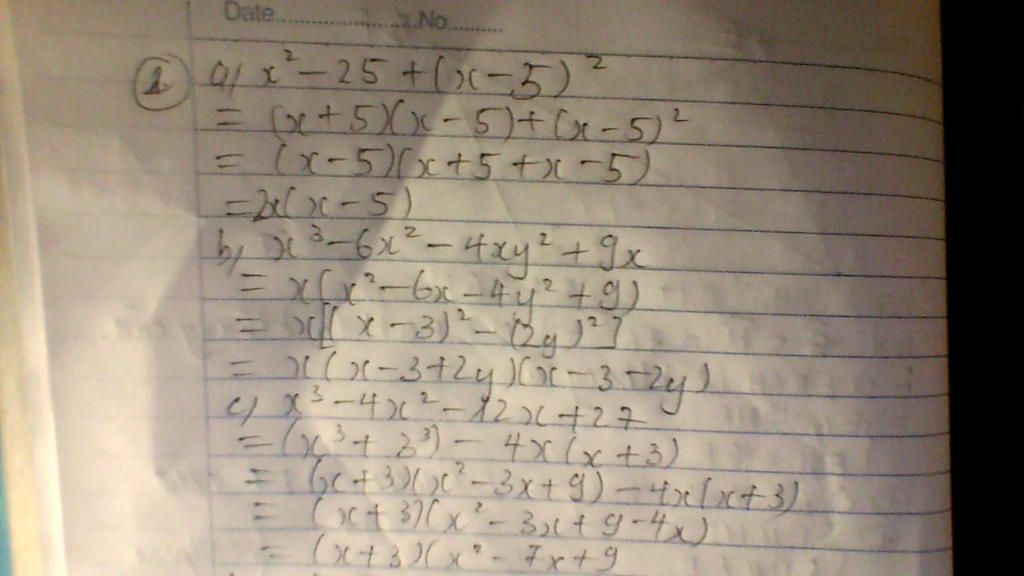 Date..................No..........
1 a) x² - 25 + (x - 5)²
= (x + 5)(x - 5) + (x - 5)²
= (x - 5)(x + 5 + x - 5)
= 2x(x - 5)
b) x³ - 6x² - 4xy² + 9x
= x(x² - 6x - 4y² + 9)
= x[(x - 3)² - (2y)²]
= x(x - 3 + 2y)(x - 3 - 2y)
c) x³ - 4x² - 12x + 27
= (x³ + 3³) - 4x(x + 3)
= (x + 3)(x² - 3x + 9) - 4x(x + 3)
= (x + 3)(x² - 3x + 9 - 4x)
= (x + 3)(x² - 7x + 9